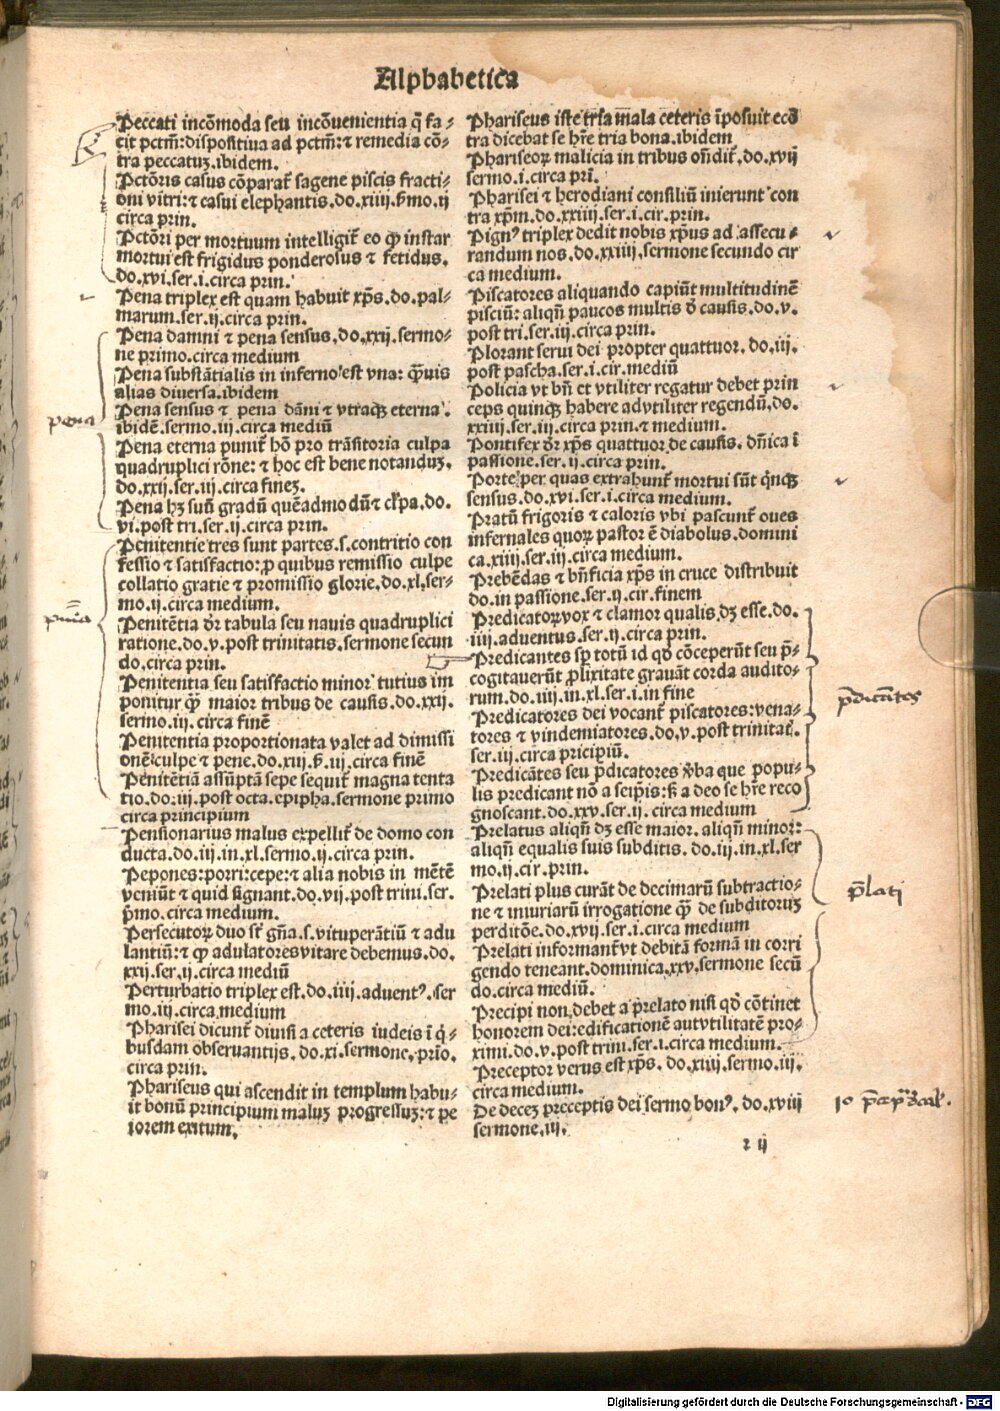 Alphabetica
Peccati incōmoda seu incōuenientia q̄ fa-
cit pctm̄: dispositiua ad pctm̄: ⁊ remedia cō-
tra peccatuꝫ. ibidem.
Pctōris casus cōparat̄ sagene piscis fracti-
oni vitri: ⁊ casui elephantis. do. xiiij. ẜmo. ij
circa prin.
Pctōri per mortuum intelligit̄ eo ꝙ instar
mortui est frigidus ponderosus ⁊ fetidus.
do. xvi. ser. i. circa prin.
Pena triplex est quam habuit xp̄s. do. pal-
marum. ser. ij. circa prin.
Pena damni ⁊ pena sensus. do. xxij. sermo-
ne primo. circa medium
Pena substātialis in inferno est vna: ꝙ̄uis
alias diuersa. ibidem
Pena sensus ⁊ pena dāni ⁊ vtraqꝫ eterna.
ibidē. sermo. iij. circa mediū
Pena eterna punit̄ hō pro trāsitoria culpa
quadruplici rōne: ⁊ hoc est bene notanduꝫ.
do. xxij. ser. iij. circa fineꝫ.
Pena hꝫ suū gradū quēadmodū ⁊ cl̄pa. do.
vi. post tri. ser. ij. circa prin.
Penitentie tres sunt partes. s. contritio con
fessio ⁊ satisfactio: ꝓ quibus remissio culpe
collatio gratie ⁊ promissio glorie. do. xl. ser-
mo. ij. circa medium.
Penitētia dr̄ tabula seu nauis quadruplici
ratione. do. v. post trinitatis. sermone secun
do. circa prin.
Penitentia seu satisfactio minor tutius im
ponitur ꝙ̄ maior tribus de causis. do. xxij.
sermo. iij. circa finē
Penitentia proportionata valet ad dimissi
onē culpe ⁊ pene. do. xiij. ẜ. iij. circa finē
Penitētiā assūptā sepe sequit̄ magna tenta
tio. do. iij. post octa. epipha. sermone primo
circa principium
Pensionarius malus expellit̄ de domo con
ducta. do. iij. in. xl. sermo. ij. circa prin.
Pepones: porri: cepe: ⁊ alia nobis in mētē
veniūt ⁊ quid signant. do. vij. post trini. ser.
p̄mo. circa medium.
Persecutoꝝ duo st̄ gn̄a. s. vituperātiū ⁊ adu
lantiū: ⁊ ꝙ adulatores vitare debemus. do.
xxij. ser. ij. circa mediū
Perturbatio triplex est. do. iiij. aduentꝰ. ser
mo. iij. circa medium
Pharisei dicunt̄ diuisi a ceteris iudeis ī q̇-
busdam obseruantijs. do. xi. sermone. prio.
circa prin.
Phariseus qui ascendit in templum habu-
it bonū principium maluꝫ progressuꝫ: ⁊ pe
iorem exitum.
Phariseus iste tria mala ceteris īposuit ecō
tra dicebat se hr̄e tria bona. ibidem
Phariseoꝝ malicia in tribus ondit̄. do. xvij
sermo. i. circa pri.
Pharisei ⁊ herodiani consiliū inierunt con
tra xp̄m. do. xxiij. ser. i. cir. prin.
Pignꝰ triplex dedit nobis xp̄us ad assecu-
randum nos. do. xxiiij. sermone secundo cir
ca medium.
Piscatores aliquando capiūt multitudinē
pisciū: aliqn̄ paucos multis d̄ causis. do. v.
post tri. ser. iij. circa prin.
Plorant serui dei propter quattuor. do. iij.
post pascha. ser. i. cir. mediū
Policia vt bn̄ et vtiliter regatur debet prin
ceps quinqꝫ habere ad vtiliter regendū. do.
xxiij. ser. iij. circa prin. ⁊ medium.
Pontifex dr̄ xp̄s quattuor de causis. dn̄ica ī
passione. ser. ij. circa prin.
Porte per quas extrahunt̄ mortui sūt q̇nqꝫ
sensus. do. xvi. ser. i. circa medium.
Pratū frigoris ⁊ caloris vbi pascunt̄ oues
infernales quoꝝ pastor ē diabolus. domini
ca. xiiij. ser. iij. circa medium.
Prebēdas ⁊ bn̄ficia xp̄s in cruce distribuit
do. in passione. ser. ij. cir. finem
Predicatoꝝ vox ⁊ clamor qualis dꝫ esse. do.
iiij. aduentus. ser. ij. circa prin.
Predicantes sp̄ totū id qd̄ cōceperūt seu p̄-
cogitauerūt ꝓlixitate grauāt corda audito-
rum. do. iiij. in. xl. ser. i. in fine
Predicatores dei vocant̄ piscatores: vena-
tores ⁊ vindemiatores. do. v. post trinitat̄.
ser. iij. circa pricipiū.
Predicātes seu p̄dicatores v̄ba que popu-
lis predicant nō a seip̄is: ẜ a deo se hr̄e reco
gnoscant. do. xxv. ser. ij. circa medium
Prelatus aliqn̄ dꝫ esse maior. aliqn̄ minor:
aliqn̄ equalis suis subditis. do. iij. in. xl. ser
mo. ij. cir. prin.
Prelati plus curāt de decimarū subtractio-
ne ⁊ iniuriarū irrogatione ꝙ̄ de subditoruꝫ
perditōe. do. xvij. ser. i. circa medium
Prelati informant̄ vt debitā formā in corri
gendo teneant. dominica. xxv. sermone secū
do. circa mediū.
Precipi non debet a prelato nisi qd̄ cōtinet
honorem dei: edificationē aut vtilitatē pro-
ximi. do. v. post trini. ser. i. circa medium.
Preceptor verus est xp̄s. do. xiiij. sermo. iij.
circa medium.
De deceꝫ preceptis dei sermo bonꝰ. do. xviij
sermone. iij.
2 ij
pena
p̄dicātes
p̄lati